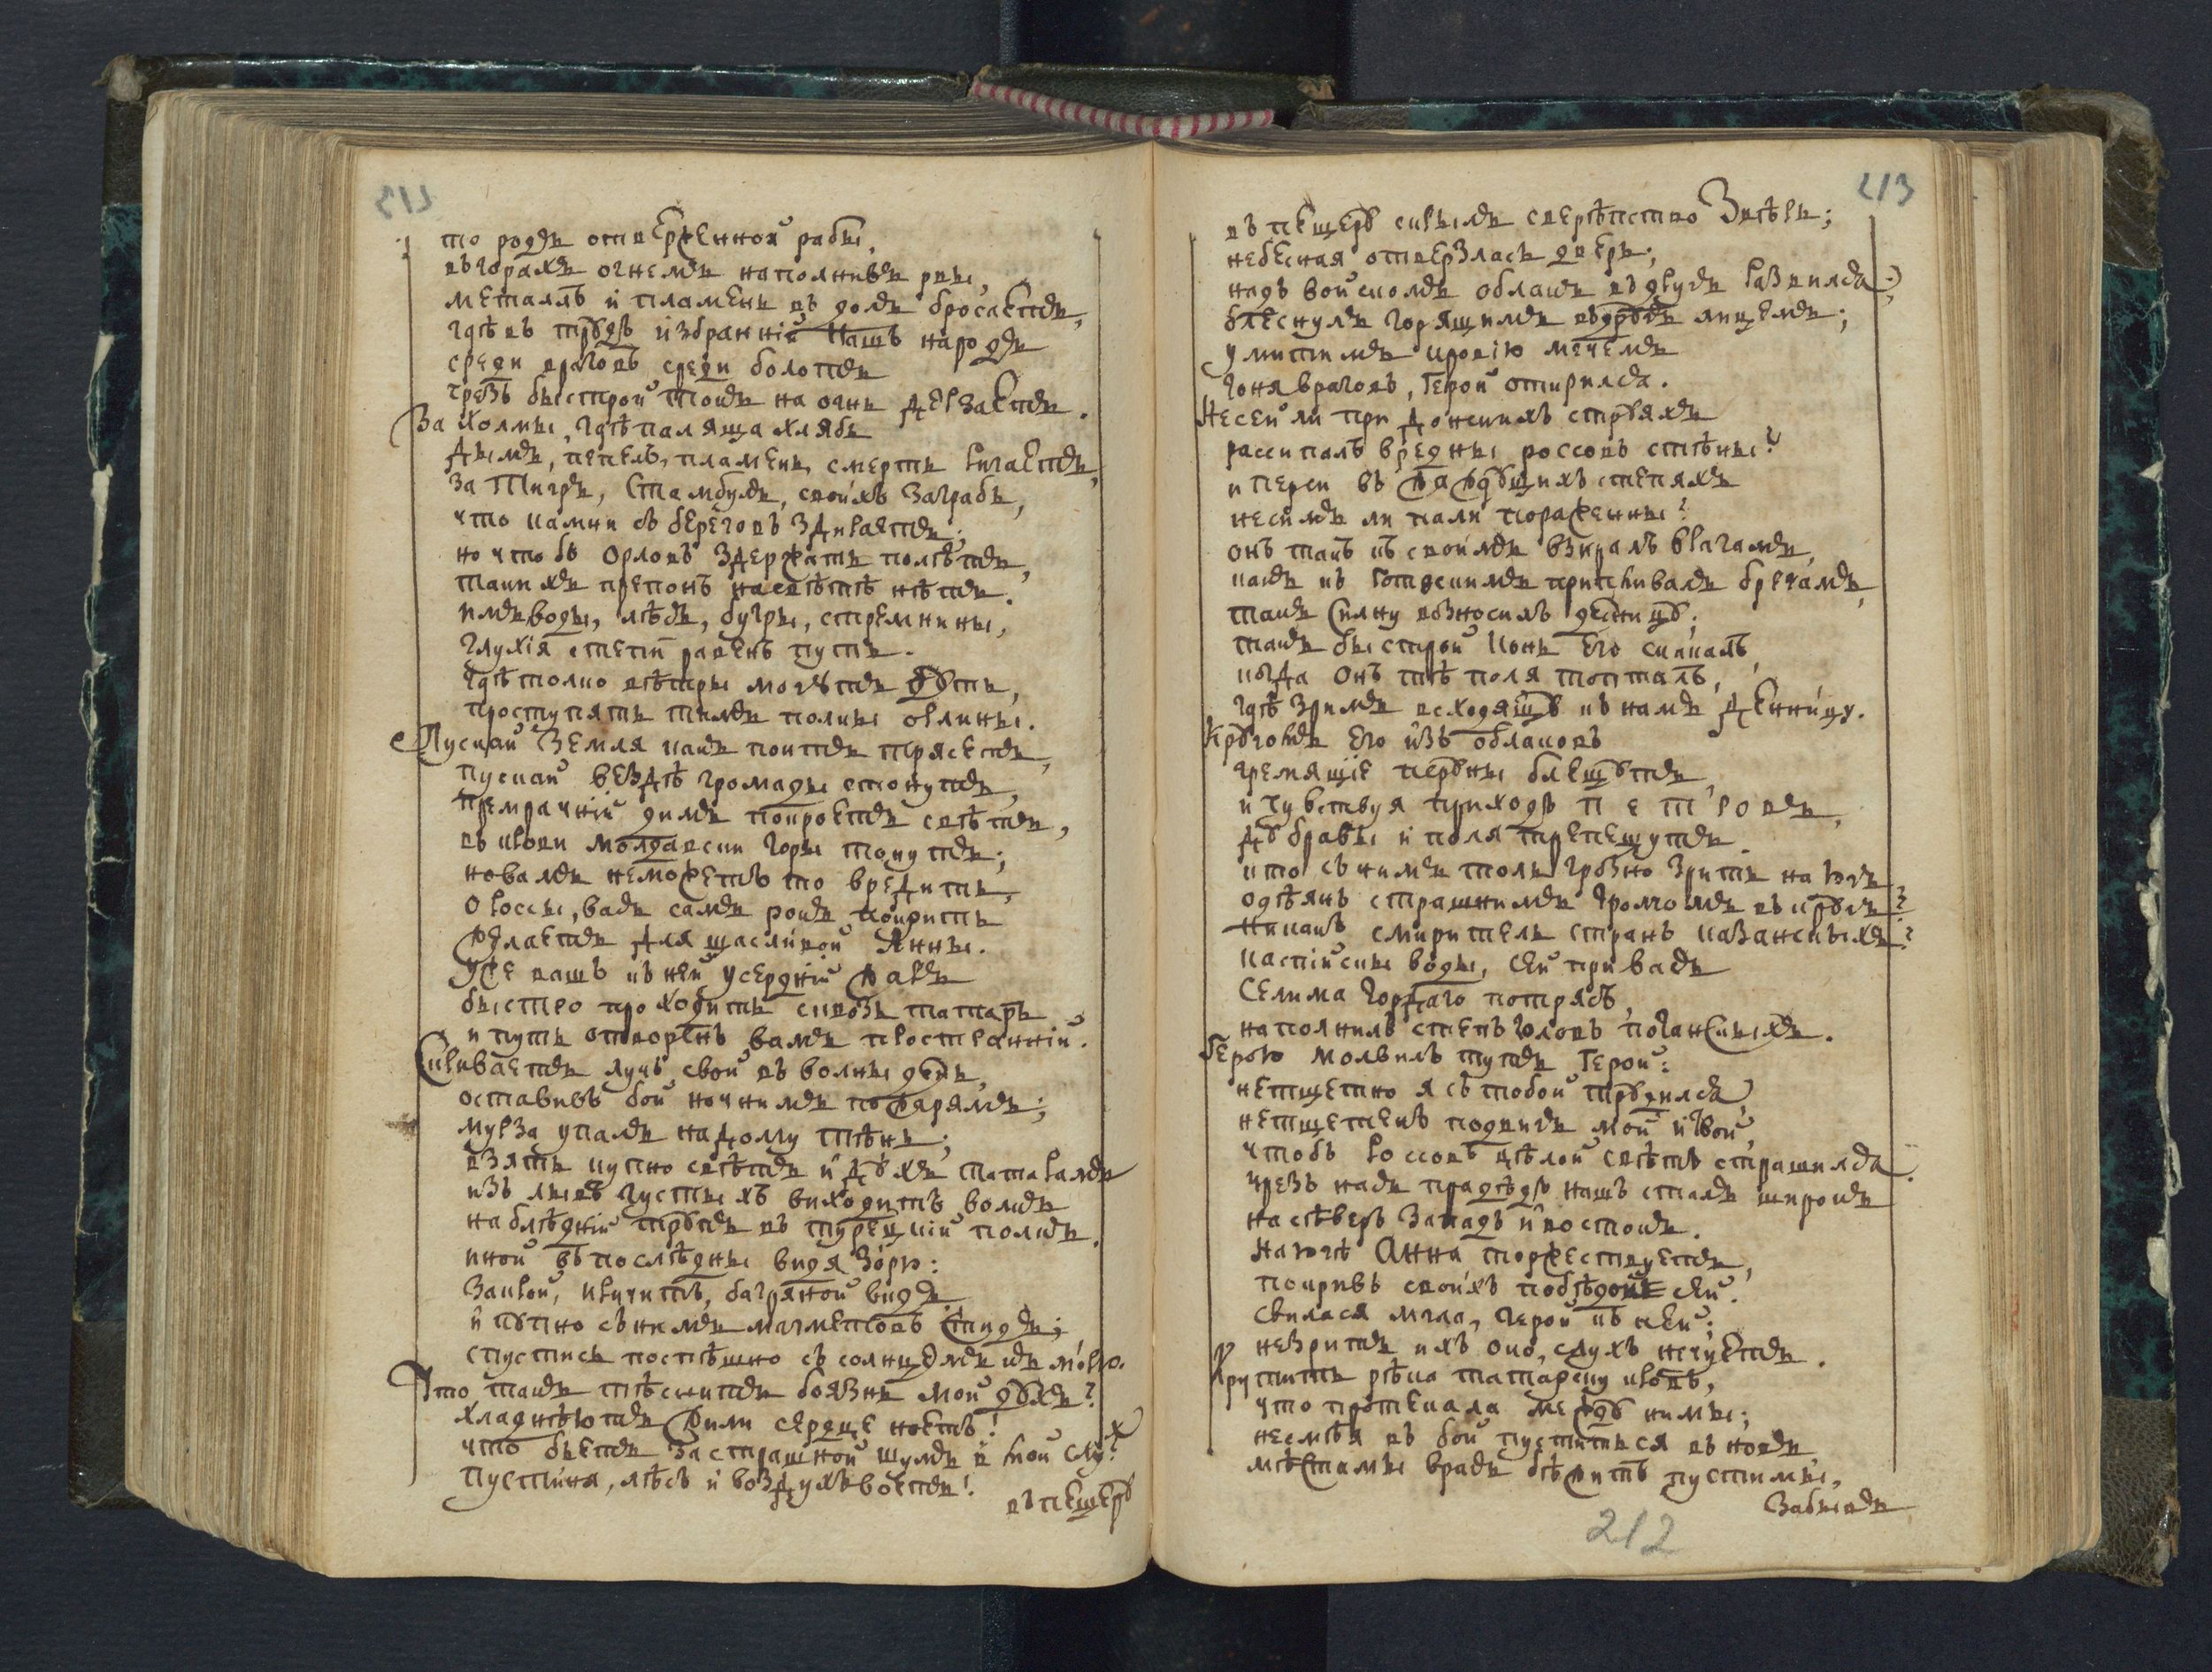 213
то родъ отверженной рабы,
въгорахъ огнемъ наполнивъ рвы,
металлъ и пламень въ долъ бросаетъ,
гдѣ въ трудъ избранній нашъ народъ
среди враговъ среди болотъ
чрезъ быстрой токъ на огнь дерзаетъ.
За холмы, гдѣ паляща хлябь
дымъ, пепелъ, пламень, смерть ригаетъ,
за Тигръ, Стамбулъ, своихъ заграбь,
что камни съ береговъ здираетъ;
но чтобъ орловъ здержать полѣтъ,
такихъ препонъ насвѣтѣ нѣтъ.
имъ воды, лѣсъ, бугры, стремнины,
глухія степи равенъ путь.
гдѣ толко вѣтры могутъ дуть,
проступятъ тамъ полки орлины.
Пускай земля какъ понтъ трясетъ,
пускай вездѣ громады стонутъ,
премрачній димъ покроетъ свѣтъ,
въ крови молдавски горы тонутъ;
новамъ неможетъ то вредить,
о россы, васъ самъ рокъ покрить
желаетъ для щасливой Анны.
уже вашъ къ ней усердній жаръ
быстро проходитъ сквозь татаръ
и путь отворенъ вамъ пространній.
Скриваетъ лучь свой въ волны день,
оставивъ бой ночнимъ пожарамъ;
мурза упалъ надолгу тѣнь;
взятъ купно свѣтъ и духъ татарамъ
изъ лывъ густыхъ виходитъ волкъ
наблѣдній трупъ въ турецкій полкъ.
иной въ послѣдны видя зорю:
закрой, кричитъ, багряной видъ
и купно съ нимъ магметовъ стидъ;
спустись поспѣшно съ солнцемъ къ морю.
Что такъ тѣснитъ боязнь мой духъ?
хладнѣютъ жили сердце ноетъ!
что бьетъ за страшной шумъ в мой слухъ?
пустиня, лѣсъ и воздухъ воетъ!
въ пещеру
213
въ пещеру скрылъ свирѣпство звѣрь;
небесная отверзлась дверь;
надъ войскомъ облакъ вдругъ развился;
блеснулъ горящимъ вдругъ лицемъ;
умитимъ кровію мечемъ
гоня враговъ, герой открился.
Несей ли при донскихъ струяхъ
рассипалъ вредны россовъ стѣны?
и перси въ жаждущихъ степяхъ
несимъ ли пали пораженны?
онъ такъ къ своимъ взиралъ врагамъ,
какъ къ готскимъ приплывалъ брегамъ,
такъ силну возносилъ десницу;
такъ быстрой конь его скакалъ,
когда онъ тѣ поля топталъ,
гдѣ зримъ всходящу къ намъ денницу.
Кругомъ его изъ облаковъ
гремящіе перуны блещутъ,
и чувствуя приходъ петровъ,
дубравы и поля трепещутъ.
кто съ нимъ толь грозно зрить на югъ
одѣянъ страшнимъ громомъ въкругъ?
никакъ смиритель странъ казанскыхъ?
каспійскы воды, сей при васъ
селима гордаго потрясъ,
наполнилъ степъ головъ поганскыхъ.
Герою молвилъ тутъ герой:
нетщетно я съ тобой трудился
нетщетенъ подвигъ мой и твой,
чтобъ россовъ цѣлой свѣтъ страшился.
чрезъ насъ предѣлъ нашъ сталъ широкъ
на сѣверъ западъ и востокъ.
на югѣ Анна торжествуетъ,
покривъ своихъ побѣдой сей.
свилася мгла, герои въ ней;
незритъ ихъ око, слухъ нечуетъ.
Крутитъ рѣка татарску кровь,
что протекала между ними;
несмѣя въ бой пуститься вновь
мѣстами врагъ бѣжитъ пустими,
забывъ
212